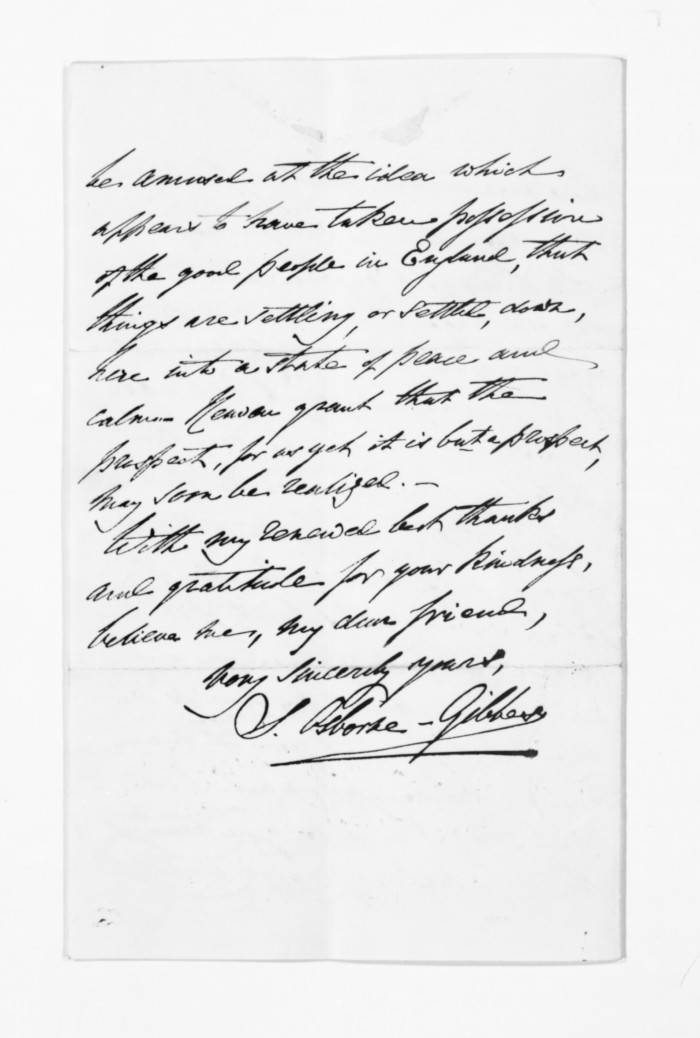 be amused at the idea which
appears to have taken possession
of the good people in England, that
things are settling, or settled, down,
here into a state of peace and
calm. Heaven grant that the
prospect, for as yet it is but a prospect,
may soon be realized. —
With my renewed best thanks
and gratitude for your kindness,
believe me, my dear friend,
very sincerely yours,
S. Osborne-Gibbes